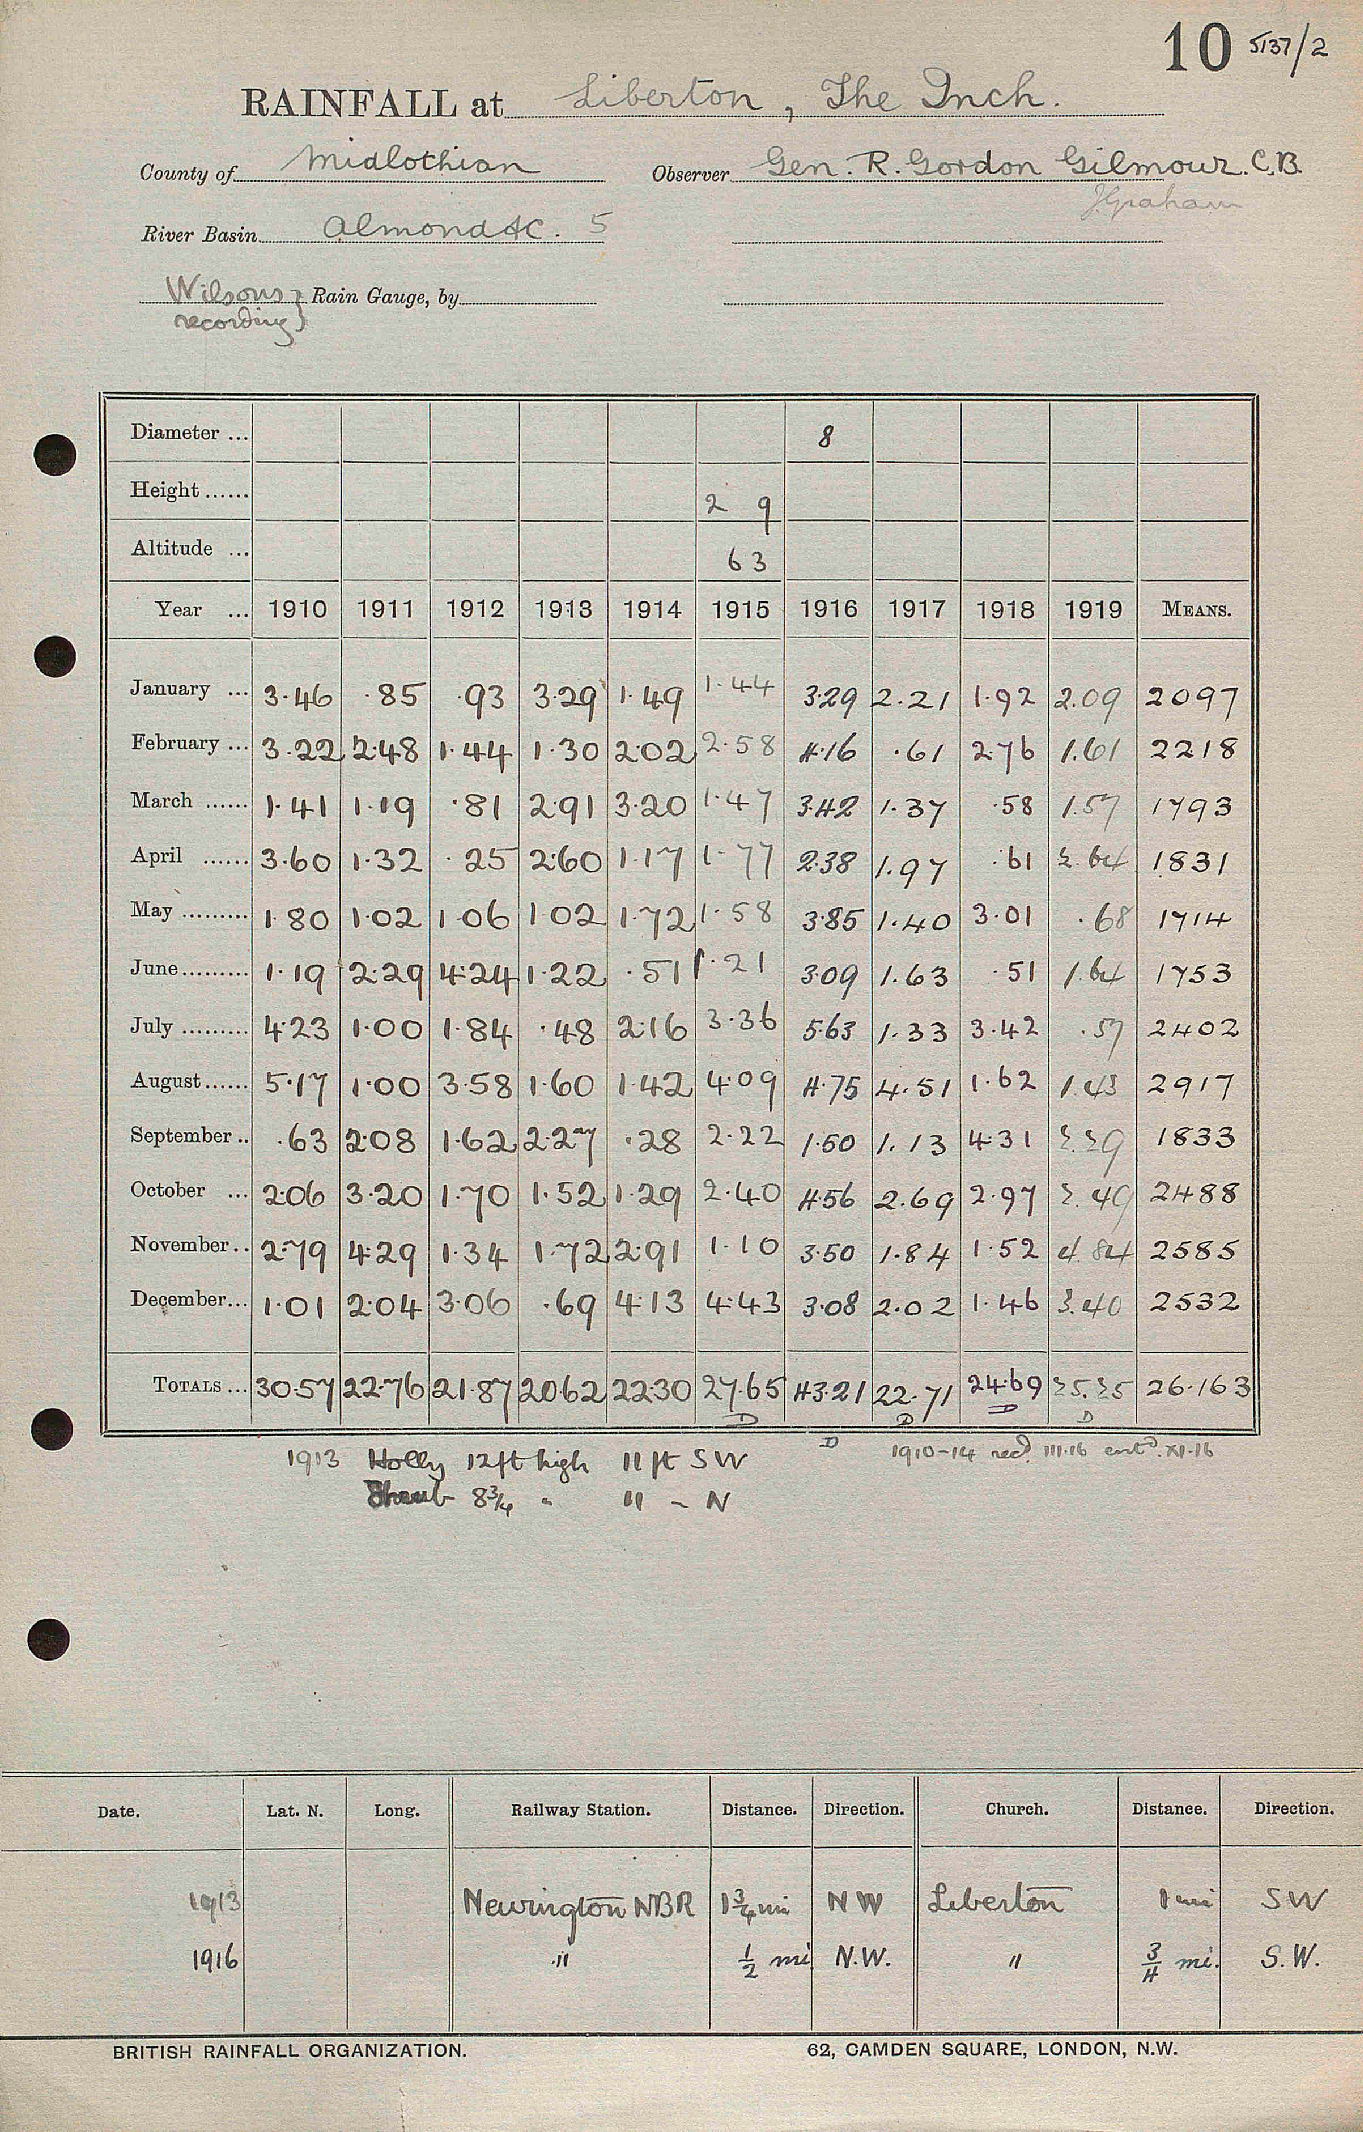 10 5137/2
RAINFALL at Liberton, The Inch.
County of Midlothian Observer Gen. R. Gordon Gilmour. C.B.
J. Graham
River Basin Almond &c. 5
Wilsons } Rain Gauge, by
recording }
Diameter ... 8
Height ...... 2 9
Altitude ... 63
Year ... 1910 1911 1912 1913 1914 1915 1916 1917 1918 1919 MEANS.
January ... 3.46 .85 .93 3.29 1.49 1.44 3.29 2.21 1.92 2.09 2097
February ... 3.22 2.48 1.44 1.30 2.02 2.58 4.16 .61 2.76 1.61 2218
March ...... 1.41 1.19 .81 2.91 3.20 1.47 3.42 1.37 .58 1.57 1793
April ...... 3.60 1.32 .25 2.60 1.17 1.77 2.38 1.97 .61 2.64 1831
May ......... 1.80 1.02 1.06 1.02 1.72 1.58 3.85 1.40 3.01 .68 1714
June ......... 1.19 2.29 4.24 1.22 .51 1.21 3.09 1.63 .51 1.64 1753
July ......... 4.23 1.00 1.84 .48 2.16 3.36 5.63 1.33 3.42 .57 2402
August ...... 5.17 1.00 3.58 1.60 1.42 4.09 4.75 4.51 1.62 1.43 2917
September .. .63 2.08 1.62 2.27 .28 2.22 1.50 1.13 4.31 2.29 1833
October ... 2.06 3.20 1.70 1.52 1.29 2.40 4.56 2.69 2.97 2.49 2488
November .. 2.79 4.29 1.34 1.72 2.91 1.10 3.50 1.84 1.52 4.84 2585
December ... 1.01 2.04 3.06 .69 4.13 4.43 3.08 2.02 1.46 3.40 2532
TOTALS ... 30.57 22.76 21.87 20.62 22.30 27.65 43.21 22.71 24.69 25.25 26.163
D D D D D
1913 Holly 12ft high 11 ft SW 1910-14 recd. III.16 entd. XI.16
Shrub 8¾ " 11 - N
Date. Lat. N. Long. Railway Station. Distance. Direction. Church. Distance. Direction.
1913 Newington NBR 1¾ mi NW Liberton 1 mi SW
1916 " ½ mi N.W. " ¾ mi. S.W.
BRITISH RAINFALL ORGANIZATION. 62, CAMDEN SQUARE, LONDON, N.W.